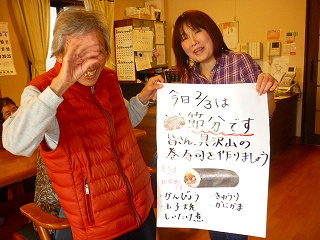 今日2/3は
節分です
皆さん、具沢山の
巻寿司を作りましょう
かんぴょう きゅうり
玉子焼 かにかま
しいたけ煮